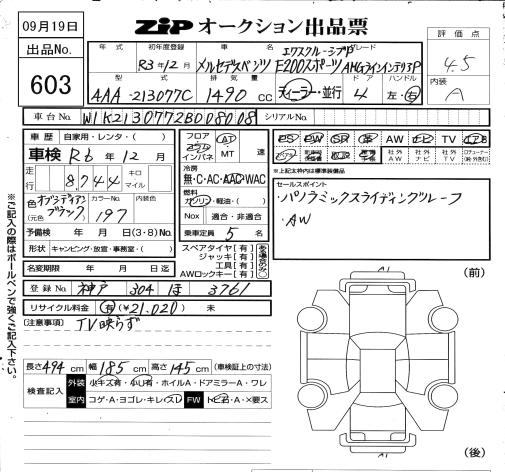 09月19日
ZIP オークション出品票
出品No.
603
評価点
4.5
内装
A
年式
初年度登録
車名
グレード
R3年12月
メルセデスベンツ
E200スポーツ
エクスクルーシブP
AMGラインインテリアP
型式
排気量
ドア
ハンドル
4AA-213077C
1490 CC
ディーラー・並行
4
左・右
車台No.
W1K2130772B008008
シリアルNo.
車歴
自家用・レンタ・( )
車検 R6年12月
走行
8,744
キロ
マイル
外装色
オブシディアンブラック
(元色
カラーNo.
197
内装色
予備検 年 月 日(3・8)No.
形状 キャンピング・放宣・事務室・( )
名変期限 年 月 日迄
登録No. 神戸 304 ほ 3761
リサイクル料金 有(¥21,020) 未
フロア
コラム
インパネ
AT
MT
速
冷房
無・C・AC・AAC・WAC
燃料
ガソリン・軽油・( )
Nox 適合・非適合
乗車定員 5名
スペアタイヤ[有]
ジャッキ[有]
工具[有]
AWロックキー[有]
ある場合のみ○
PS PW SR 革 AW TV
社外AW
社外ナビ
社外TV
※上記太枠内は標準装備品
セールスポイント
・パノラミックスライディングルーフ
・AW
[注意事項]
TV映らず
長さ494cm 幅185cm 高さ145cm (車検証上の寸法)
検査記入
外装 小キズ有・小U有・ホイルA・ドアミラーA・ワレ
室内 コゲA・ヨゴレ・キレ・スレ FW トビ石・A・×要ス
(前)
(後)
※ご記入の際はボールペンで強くご記入下さい。